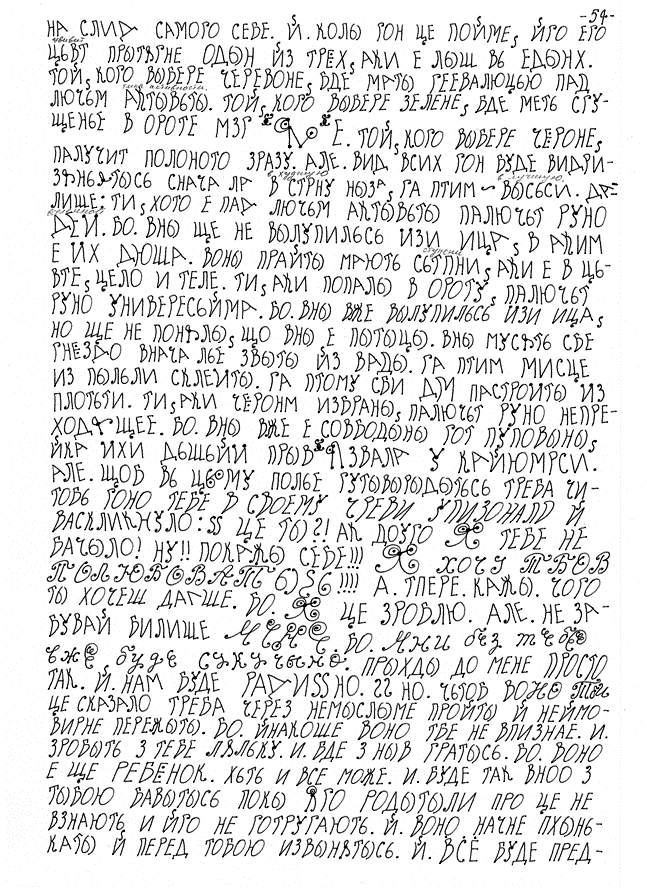 -54-
НА СЛИД САМОГО СЕБЕ. Й. КОЛЫ ГОН ЦЕ ПОЙМЕ, ЙГО ЕГО
ЦЬВТ ПРЫТЯГНЕ ОДЫН ЙЗ ТРЁХ, АКИ Е ЛЫШ ВЬ ЕДЫНХ.
ТОЙ, КОГО ВЫБЕРЕ ЧЕРЕВОНЕ, БДЕ МАТЫ РЕЕВАЛЮЦЬЮ ПАД
ЛЮЧЬМ АКТЫВЬТЫ. ТОЙ, КОГО ВЫБЕРЕ ЗЕЛЕНЕ, БДЕ МЕТЬ СГУ-
ЩЕНЬЕ В ОРОТЕ МЗГ Е. ТОЙ, КОГО ВЫБЕРЕ ЧЁРОНЕ,
ПАЛУЧИТ ПОЛОНОТО ЗРАЗУ. АЛЕ. ВИД ВСИХ ГОН БУДЕ ВИДРИ-
СНАЧА ЛА В СТРНУ НЫЗА, ГА ПТИМ
ЛИЩЕ: ТИ, ХОТО Е ПАД ЛЮЧЬМ АКТЫВЬТЫ ПАЛЮЧЬТ РУНО
ДЕЙ. БО. ВНЫ ЩЕ НЕ ВЫЛУПИЛЬСЬ ИЗИ ИЦА, В АКИМ
Е ИХ ДЮША. ВОНЫ ПРАЙТЫ МАЮТЬ СЬТПНИ, АКИ Е В ЦЬ-
ВТЕ, ЦЕЛО И ТЕЛЕ. ТИ, АКИ ПОПАЛЫ В ОРОТУ, ПАЛЮЧЬТ
РУНО УНИВЕРЕСЬЙМА. БО. ВНЫ ВЖЕ ВЫЛУПИЛЬСЬ ИЗИ ИЦА,
НО ЩЕ НЕ ПОНЯЛЫ, ЩО ВНЫ Е ПЫТЫЦЫ. ВНЫ МУСЯТЬ СВЕ
ГНЕЗДО ВНАЧА ЛЬЕ ЗВЫТЫ ЙЗ ВАДЫ. ГА ПТИМ МИСЦЕ
ИЗ ПЫЛЬЛИ СКЛЕИТЫ. ГА ПТОМУ СВИ ДТИ ПАСТРОИТЫ ИЗ
ПЛОТЬТИ. ТИ, АКИ ЧЁРОНМ ИЗБРАНЫ, ПАЛЮЧЬТ РУНО НЕПРЕ-
ХОДЯЩЕЕ. БО. ВНЫ ВЖЕ Е СОВБОДЫНЫ ГОТ ПУПОВЫНЫ,
ЙКА ИХИ ДЬШЬЙИ ПРЫВ ЯЗВАЛА У КАЙЮМРСИ.
АЛЕ. ЩОБ ВЬ ЦЬОМУ ПОЛЬЕ ТРЕВА ЧИ-
ТОВЬ ГОНО ТЕБЕ В СВОЕМУ ЧРЕВИ УПИЗОНАЛО Й
ВАСКЛИКНУЛО: SS ЦЕ ТЫ?! АК ДОУГО ТЕБЕ НЕ
БАЧЫЛО! НУ!! ПОКАЖЫ СЕБЕ!!! ХОЧУ ТЬБОВ
!!!! А. ТПЕРЕ. КАЖЫ. ЧОГО
ТЫ ХОЧЕШ ДАЛШЕ. БО. ЦЕ ЗРОБЛЮ. АЛЕ. НЕ ЗА-
БУВАЙ БИЛИЩЕ МЕНЕ. БО. МНИ без тебе
вже буде скучьно. ПРЫХДЫ ДО МЕНЕ ПРОСТО
ТАК. Й. НАМ БУДЕ РАДИSSНО. ?? НО. ЧЬТОБ ВОНО ТЬБ
ЦЕ СКАЗАЛО ТРЕБА ЧЕРЕЗ НЕМЫСЛЫМЕ ПРОЙТЫ Й НЕЙМО-
ВИРНЕ ПЕРЕЖЫТЫ. БО. ЙНАКОЩЕ ВОНО ТВЕ НЕ ВПИЗНАЕ. И.
ЗРОБЫТЬ З ТЕБЕ ЛЯЛЬКУ. И. БДЕ З НЫВ ГРАТЫСЬ. БО. ВОНО
Е ЩЕ РЕБЕНОК. ХЬТЬ И ВСЕ МОЖЕ. И. БУДЕ ТАК ВНОО З
ТЫБОЮ БАВЫТЫСЬ ПОКЫ ЙГО РОДЫТЫЛИ ПРО ЦЕ НЕ
ВЗНАЮТЬ И ЙГО НЕ ГОТРУГАЮТЬ. Й. ВОНО НАЧНЕ ПХЫНЬ-
КАТЫ Й ПЕРЕД ТОБОЮ ИЗВЫНЯТЫСЬ. Й. ВСЁ БУДЕ ПРЕД-